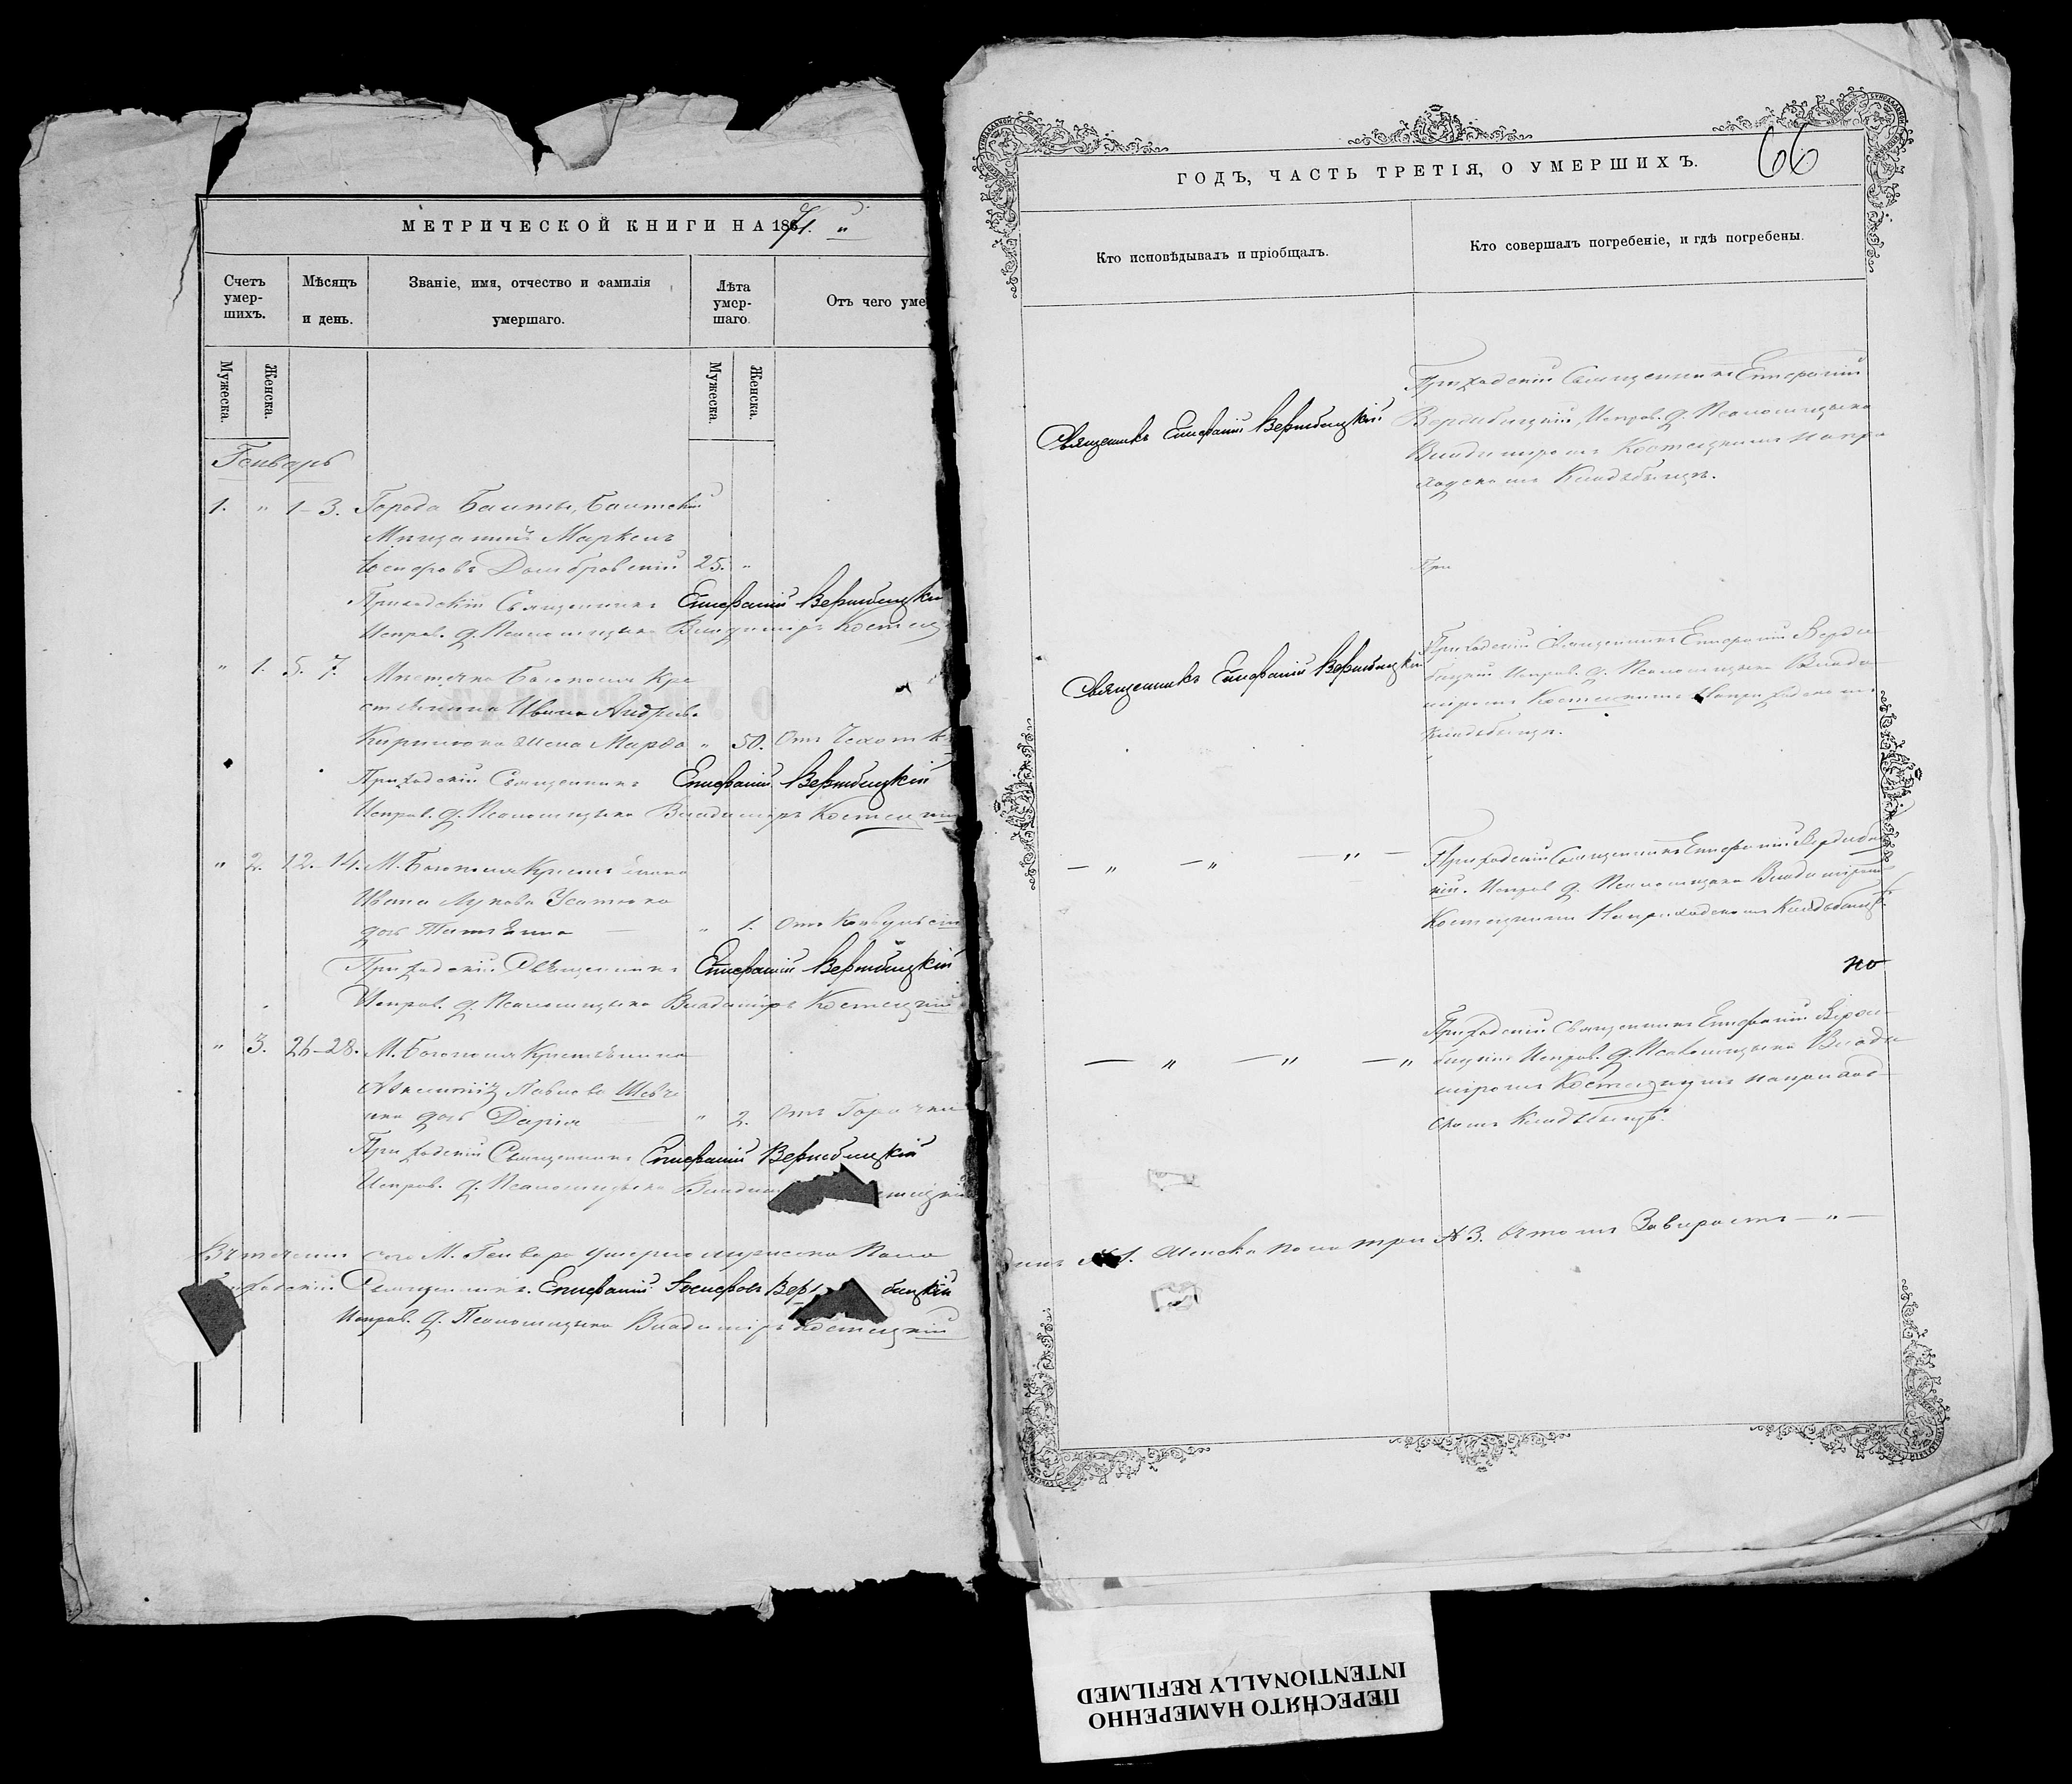 МЕТРИЧЕСКОЙ КНИГИ НА 1871.
Счетъ умер-шихъ.
Мѣсяцъ и день.
Званіе, имя, отчество и фамилія умершаго.
Лѣта умер-шаго.
Отъ чего уме
Мужеска.
Женска.
Мужеска.
Женска.
Генварь
1. " 1-3. Города Балты, Балтскій
Мѣщанинъ Маркелъ
Іосифовъ Домбровскій 25. "
Приходскій Священникъ Епифаній Вержбицкій
Исправ. д. Псаломщика Владиміръ Костец
" 1. 5. 7. Мѣстечка Богополя Кре
стьянина Ивана Андреева
жена Марѳа " 50. Отъ Чахотк
Приходскій Священникъ Епифаній Вержбицкій
Исправ. д. Псаломщика Владиміръ Костецкій
" 2. 12.-14. М. Богополя Крестьянина
Ивана Лукова Усатюка
дочь Татіанна " 1. Отъ Конвульсій
Приходскій Священникъ Епифаній Вержбицкій
Исправ. д. Псаломщика Владиміръ Костецкій
" 3. 26-28. М. Богополя Крестьянина
Павлова Шевч
дочь Дарія " 2. Отъ Горячки
Приходскій Священникъ Епифаній Вержбицкій
Исправ. д. Псаломщика Влади ецкій
Въ теченіи сего М. Генваря умерло мужеска пола
Священникъ Епифаній Іосифовъ Вер бицкій
Исправ. д. Псаломщика Владиміръ Костецкій
ГОДЪ, ЧАСТЬ ТРЕТІЯ, О УМЕРШИХЪ.
66
Кто исповѣдывалъ и пріобщалъ.
Кто совершалъ погребеніе, и гдѣ погребены.
Священникъ Епифаній Вержбицкій
Приходскій Священникъ Епифаній
Вержбицкій, Исправ. д. Псаломщика
Владиміромъ Костецкимъ Напри
ходскомъ Кладбищѣ.
При
Священникъ Епифаній Вержбицкій
Приходскій Священникъ Епифаній Верж
бицкій Исправ. д. Псаломщика Влади
міромъ Костецкимъ Наприходскомъ
Кладбищѣ.
— " — " — " —
Приходскій Священникъ Епифаній Вержбиц
кій. Исправ д. Псаломщика Владиміромъ
Костецкимъ Наприходскомъ Кладбищѣ.
но
— " — " — "
Приходскій Священникъ Епифаній Верж
бицкій Исправ. д. Псаломщика Влади
міромъ Костецкимъ Наприход
скомъ Кладбищѣ.
1. Женска пола три № 3. Вчтомъ Завираетъ — " —
ПЕРЕСНЯТО НАМЕРЕННО
INTENTIONALLY REFILMED